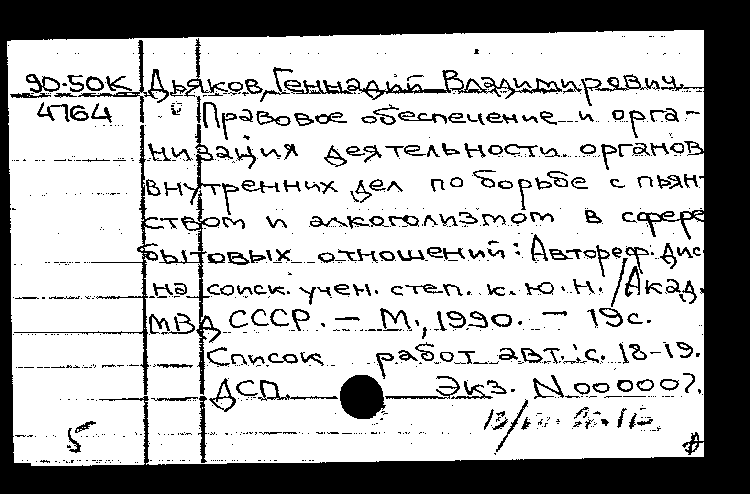 90-50К Дьяков, Геннадий Владимирович.
4764 Правовое обеспечение и орга-
низация деятельности органов
внутренних дел по борьбе с пьян-
ством и алкоголизмом в сфере
бытовых отношений: Автореф. дис.
на соиск. учен. степ. к. ю. н. / Акад.
МВД СССР. — М., 1990. — 19с.
Список работ авт.: с. 18-19.
ДСП. Экз. N 000007.
5